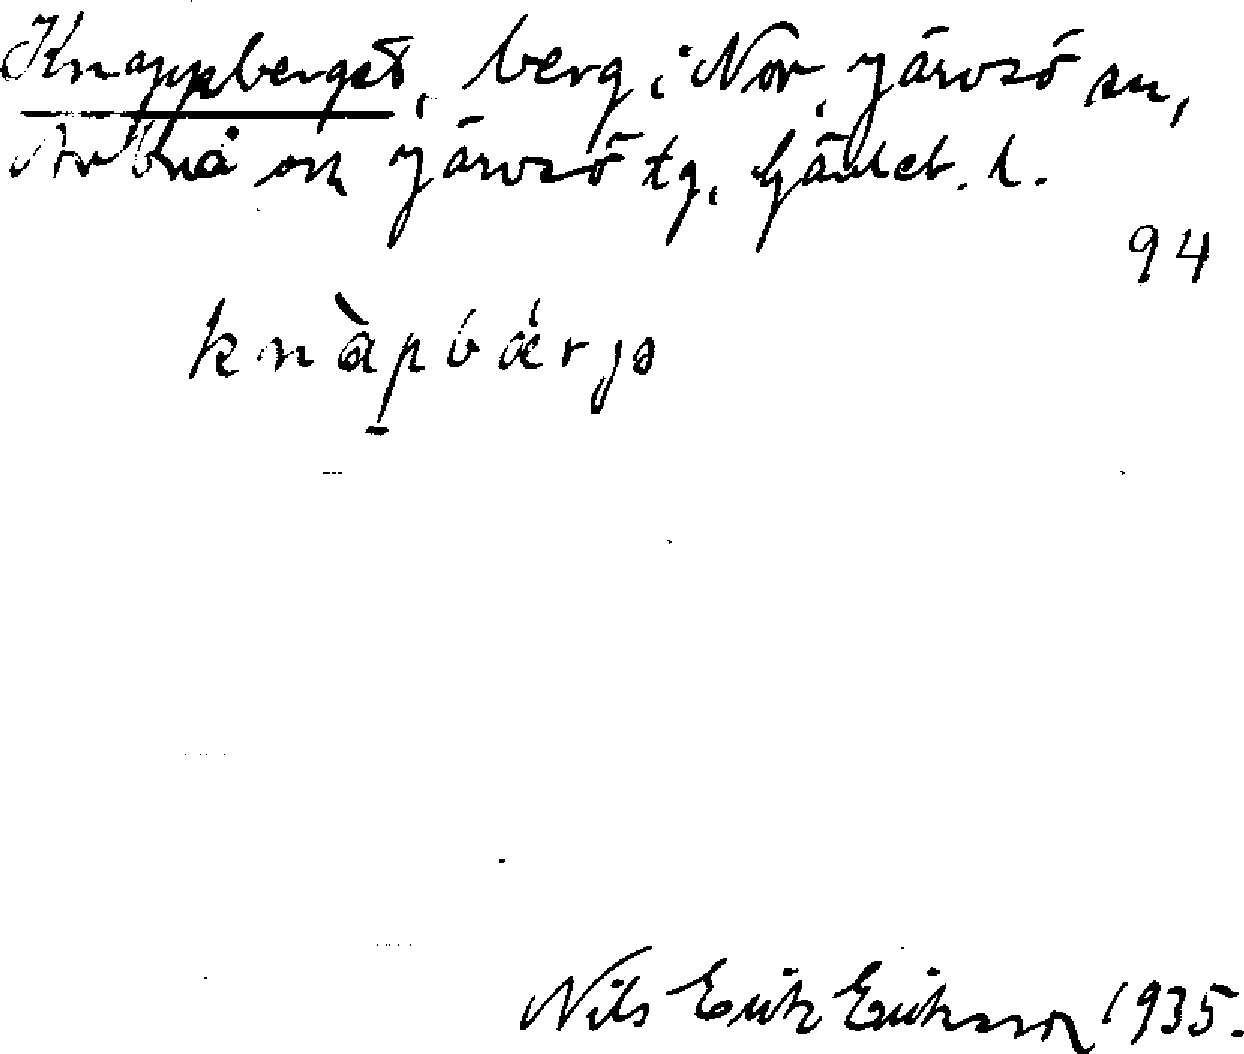 Knappberget, berg i Nor, Järvsö sn,
Arbrå och Järvsö tg, Gävleb. l.
94
knàpbǽrjə
Nils Erik Eriksson 1935.